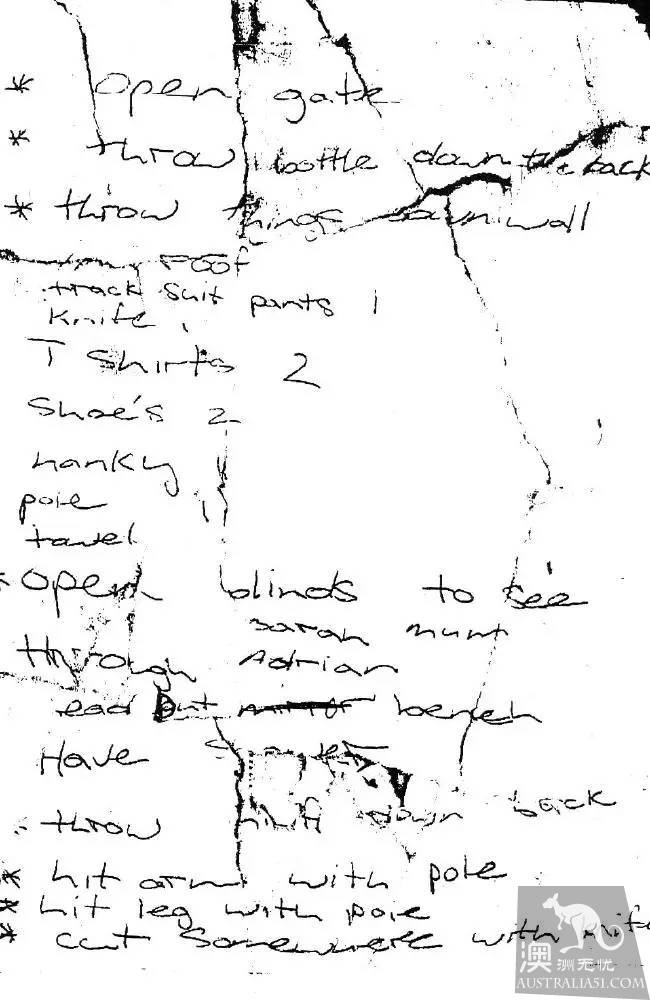 * open gate
* throw bottle down the back
* throw things down wall
roof
track suit pants 1
knife 1
T Shirts 2
Shoe's 2
hanky 1
pole 1
towel
* open blinds to see
sarah mum
through Adrian
bench
Have
throw down back
* hit arm with pole
* hit leg with pole
* cut Somewhere with knife
澳洲无忧
AUSTRALIA51.COM